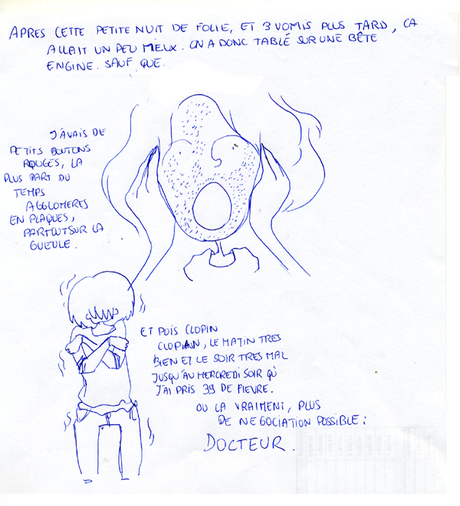 APRES CETTE PETITE NUIT DE FOLIE, ET 3 VOMIS PLUS TARD, ÇA
ALLAIT UN PEU MIEUX. ON A DONC TABLÉ SUR UNE BÊTE
ENGINE. SAUF QUE.
J'AVAIS DE
PETITS BOUTONS
ROUGES, LA
PLUS PART DU
TEMPS
AGGLOMERES
EN PLAQUES,
PARTOUT SUR LA
GUEULE.
ET PUIS CLOPIN
CLOPAN, LE MATIN TRES
BIEN ET LE SOIR TRES MAL
JUSQU'AU MERCREDI SOIR QÙ
J'AI PRIS 39 DE FIEVRE.
OU LA VRAIMENT, PLUS
DE NEGOCIATION POSSIBLE:
DOCTEUR.